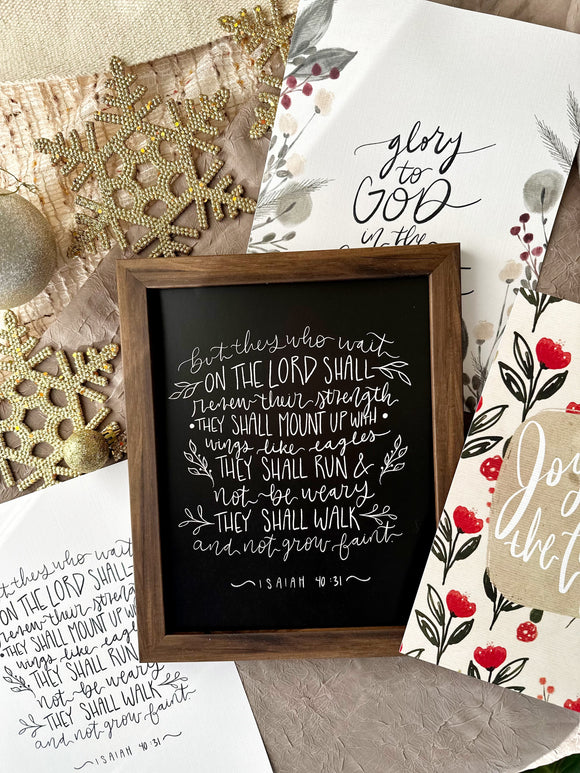 glory
to
GOD
in the
but they who wait
ON THE LORD SHALL
renew their strength
THEY SHALL MOUNT UP WITH
wings like eagles
THEY SHALL RUN &
not be weary
THEY SHALL WALK
and not grow faint.
ISAIAH 40:31
Joy
the
but they who wait
ON THE LORD SHALL
renew their strength
THEY SHALL MOUNT UP WITH
wings like eagles
THEY SHALL RUN
not be weary
THEY SHALL WALK
and not grow faint.
ISAIAH 40:31